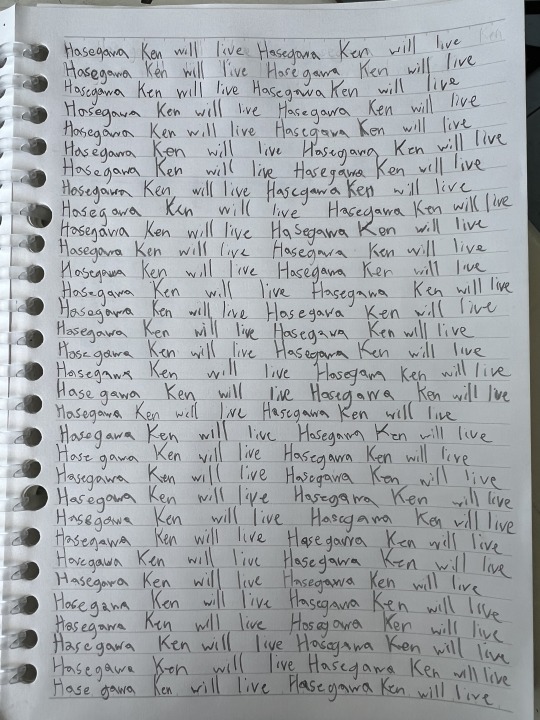 Hasegawa Ken will live Hasegawa Ken will live
Hasegawa Ken will live Hasegawa Ken will live
Hasegawa Ken will live Hasegawa Ken will live
Hasegawa Ken will live Hasegawa Ken will live
Hasegawa Ken will live Hasegawa Ken will live
Hasegawa Ken will live Hasegawa Ken will live
Hasegawa Ken will live Hasegawa Ken will live
Hasegawa Ken will live Hasegawa Ken will live
Hasegawa Ken will live Hasegawa Ken will live
Hasegawa Ken will live Hasegawa Ken will live
Hasegawa Ken will live Hasegawa Ken will live
Hasegawa Ken will live Hasegawa Ken will live
Hasegawa Ken will live Hasegawa Ken will live
Hasegawa Ken will live Hasegawa Ken will live
Hasegawa Ken will live Hasegawa Ken will live
Hasegawa Ken will live Hasegawa Ken will live
Hasegawa Ken will live Hasegawa Ken will live
Hasegawa Ken will live Hasegawa Ken will live
Hasegawa Ken will live Hasegawa Ken will live
Hasegawa Ken will live Hasegawa Ken will live
Hasegawa Ken will live Hasegawa Ken will live
Hasegawa Ken will live Hasegawa Ken will live
Hasegawa Ken will live Hasegawa Ken will live
Hasegawa Ken will live Hasegawa Ken will live
Hasegawa Ken will live Hasegawa Ken will live
Hasegawa Ken will live Hasegawa Ken will live
Hasegawa Ken will live Hasegawa Ken will live
Hasegawa Ken will live Hasegawa Ken will live
Hasegawa Ken will live Hasegawa Ken will live
Hasegawa Ken will live Hasegawa Ken will live
Hasegawa Ken will live Hasegawa Ken will live
Hasegawa Ken will live Hasegawa Ken will live